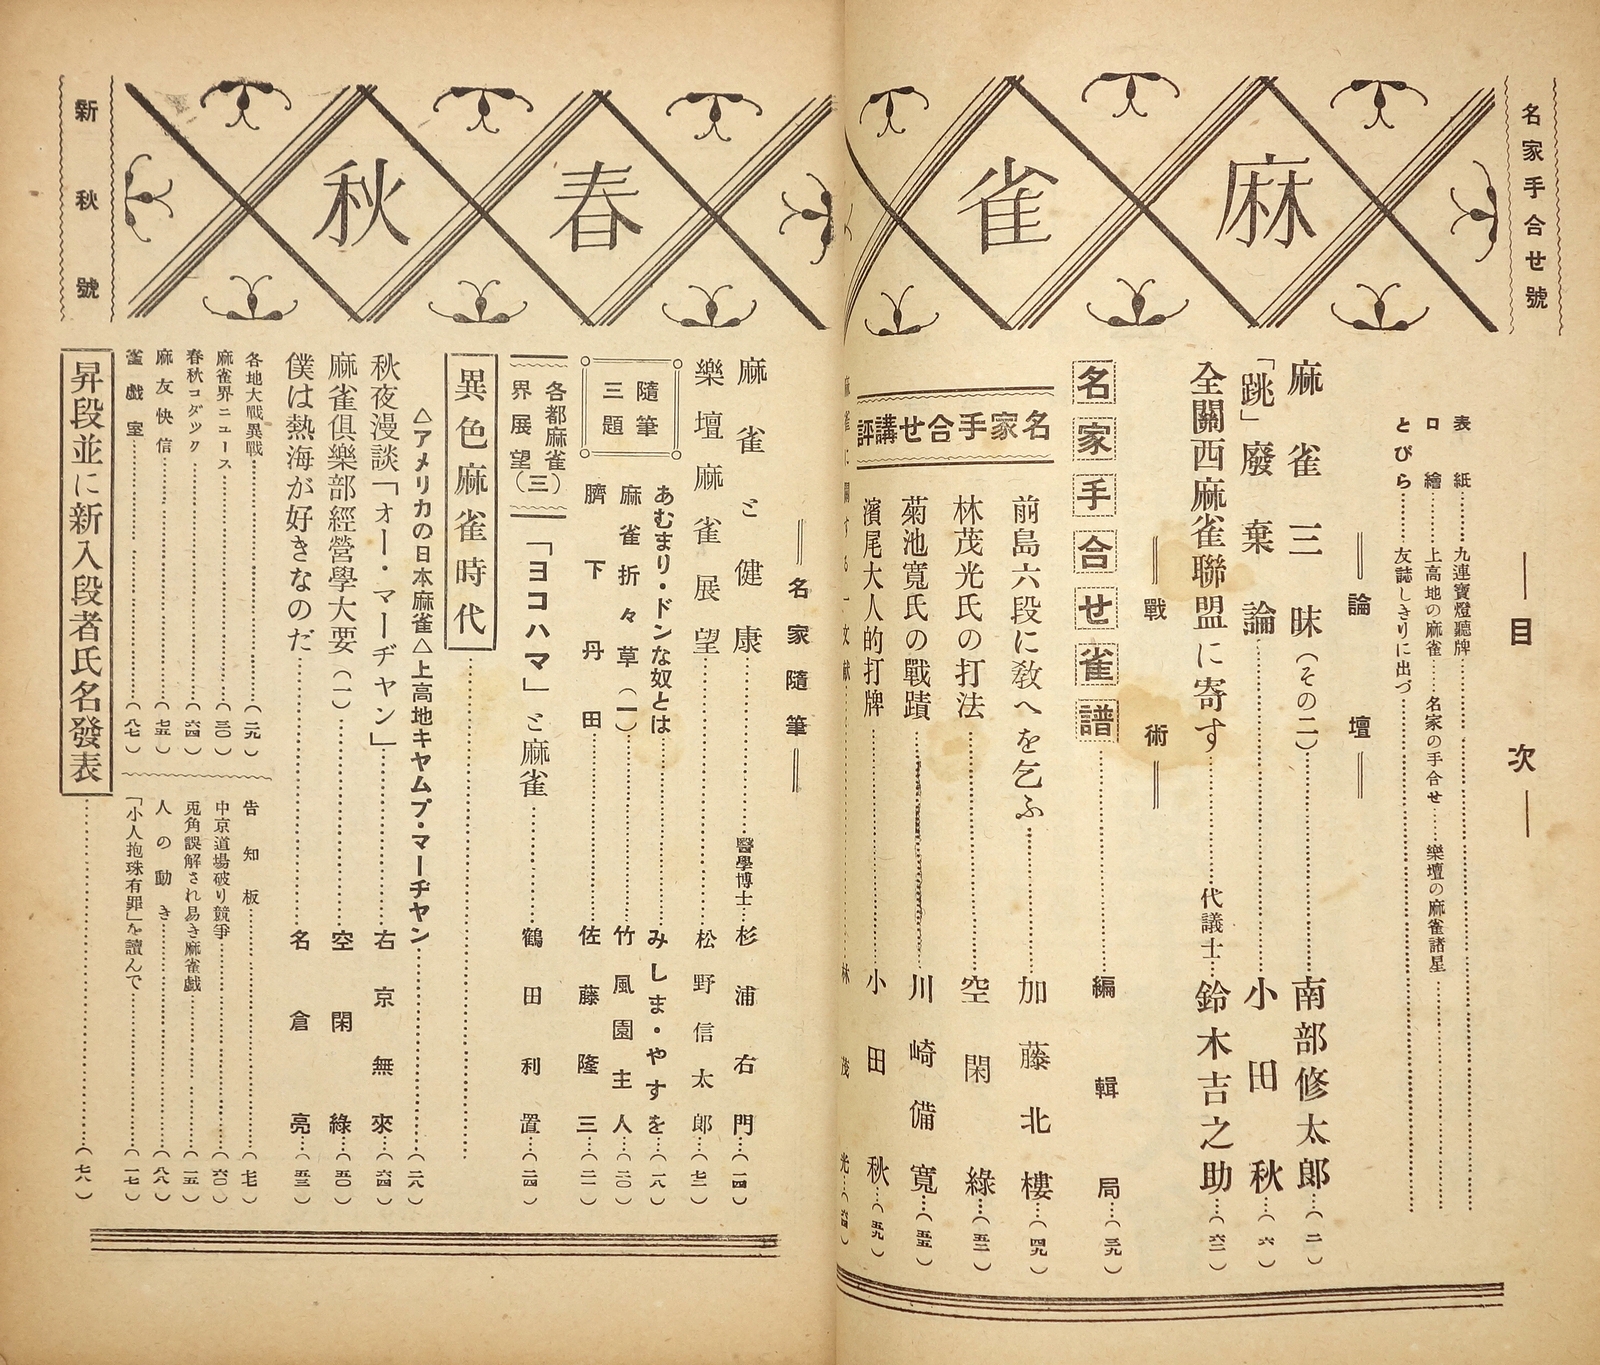 名家手合せ號
麻雀春秋
新秋號
―目次―
表紙………九連寶燈聽牌………
口繪………上高地の麻雀……名家の手合せ……樂壇の麻雀諸星………
とびら………友誌しきりに出づ………
＝論壇＝
麻雀三昧（その二）………南部修太郎…（二）
「跳」廢棄論………小田秋…（六）
全關西麻雀聯盟に寄す………代議士…鈴木吉之助…（六二）
＝戰術＝
名家手合せ雀譜………編輯局…（三九）
名家手合せ講評
前島六段に敎へを乞ふ………加藤北樓…（四九）
林茂光氏の打法………空閑綠…（五二）
菊池寬氏の戰蹟………川崎備寬…（五五）
濱尾大人的打牌………小田秋…（五九）
麻雀に關する一文献………林茂光…
＝名家隨筆＝
麻雀と健康………醫學博士…杉浦右門…（一四）
樂壇麻雀展望………松野信太郎…（七二）
隨筆三題
あむまり・ドンな奴とは………みしま・やすを…（一八）
麻雀折々草（一）………竹風園主人…（二〇）
臍下丹田………佐藤隆三…（二二）
各都麻雀界展望（三）
「ヨコハマ」と麻雀………鶴田利置…（二四）
異色麻雀時代………
△アメリカの日本麻雀△上高地キヤムプ・マーヂヤン………（二八）
秋夜漫談「オー・マーヂヤン」………右京無來…（六四）
麻雀俱樂部經營學大要（一）………空閑綠…（五〇）
僕は熱海が好きなのだ………名倉亮…（五三）
各地大戰異戰………（二九）
麻雀界ニュース………（三〇）
春秋コダック………（六四）
麻友快信………（七五）
雀戲室………（八七）
告知板………（七七）
中京道場破り競爭………（六〇）
兎角誤解され易き麻雀戲………（一五）
人の動き………（八八）
「小人抱珠有罪」を讀んで………（一七）
昇段並に新入段者氏名發表………（七八）